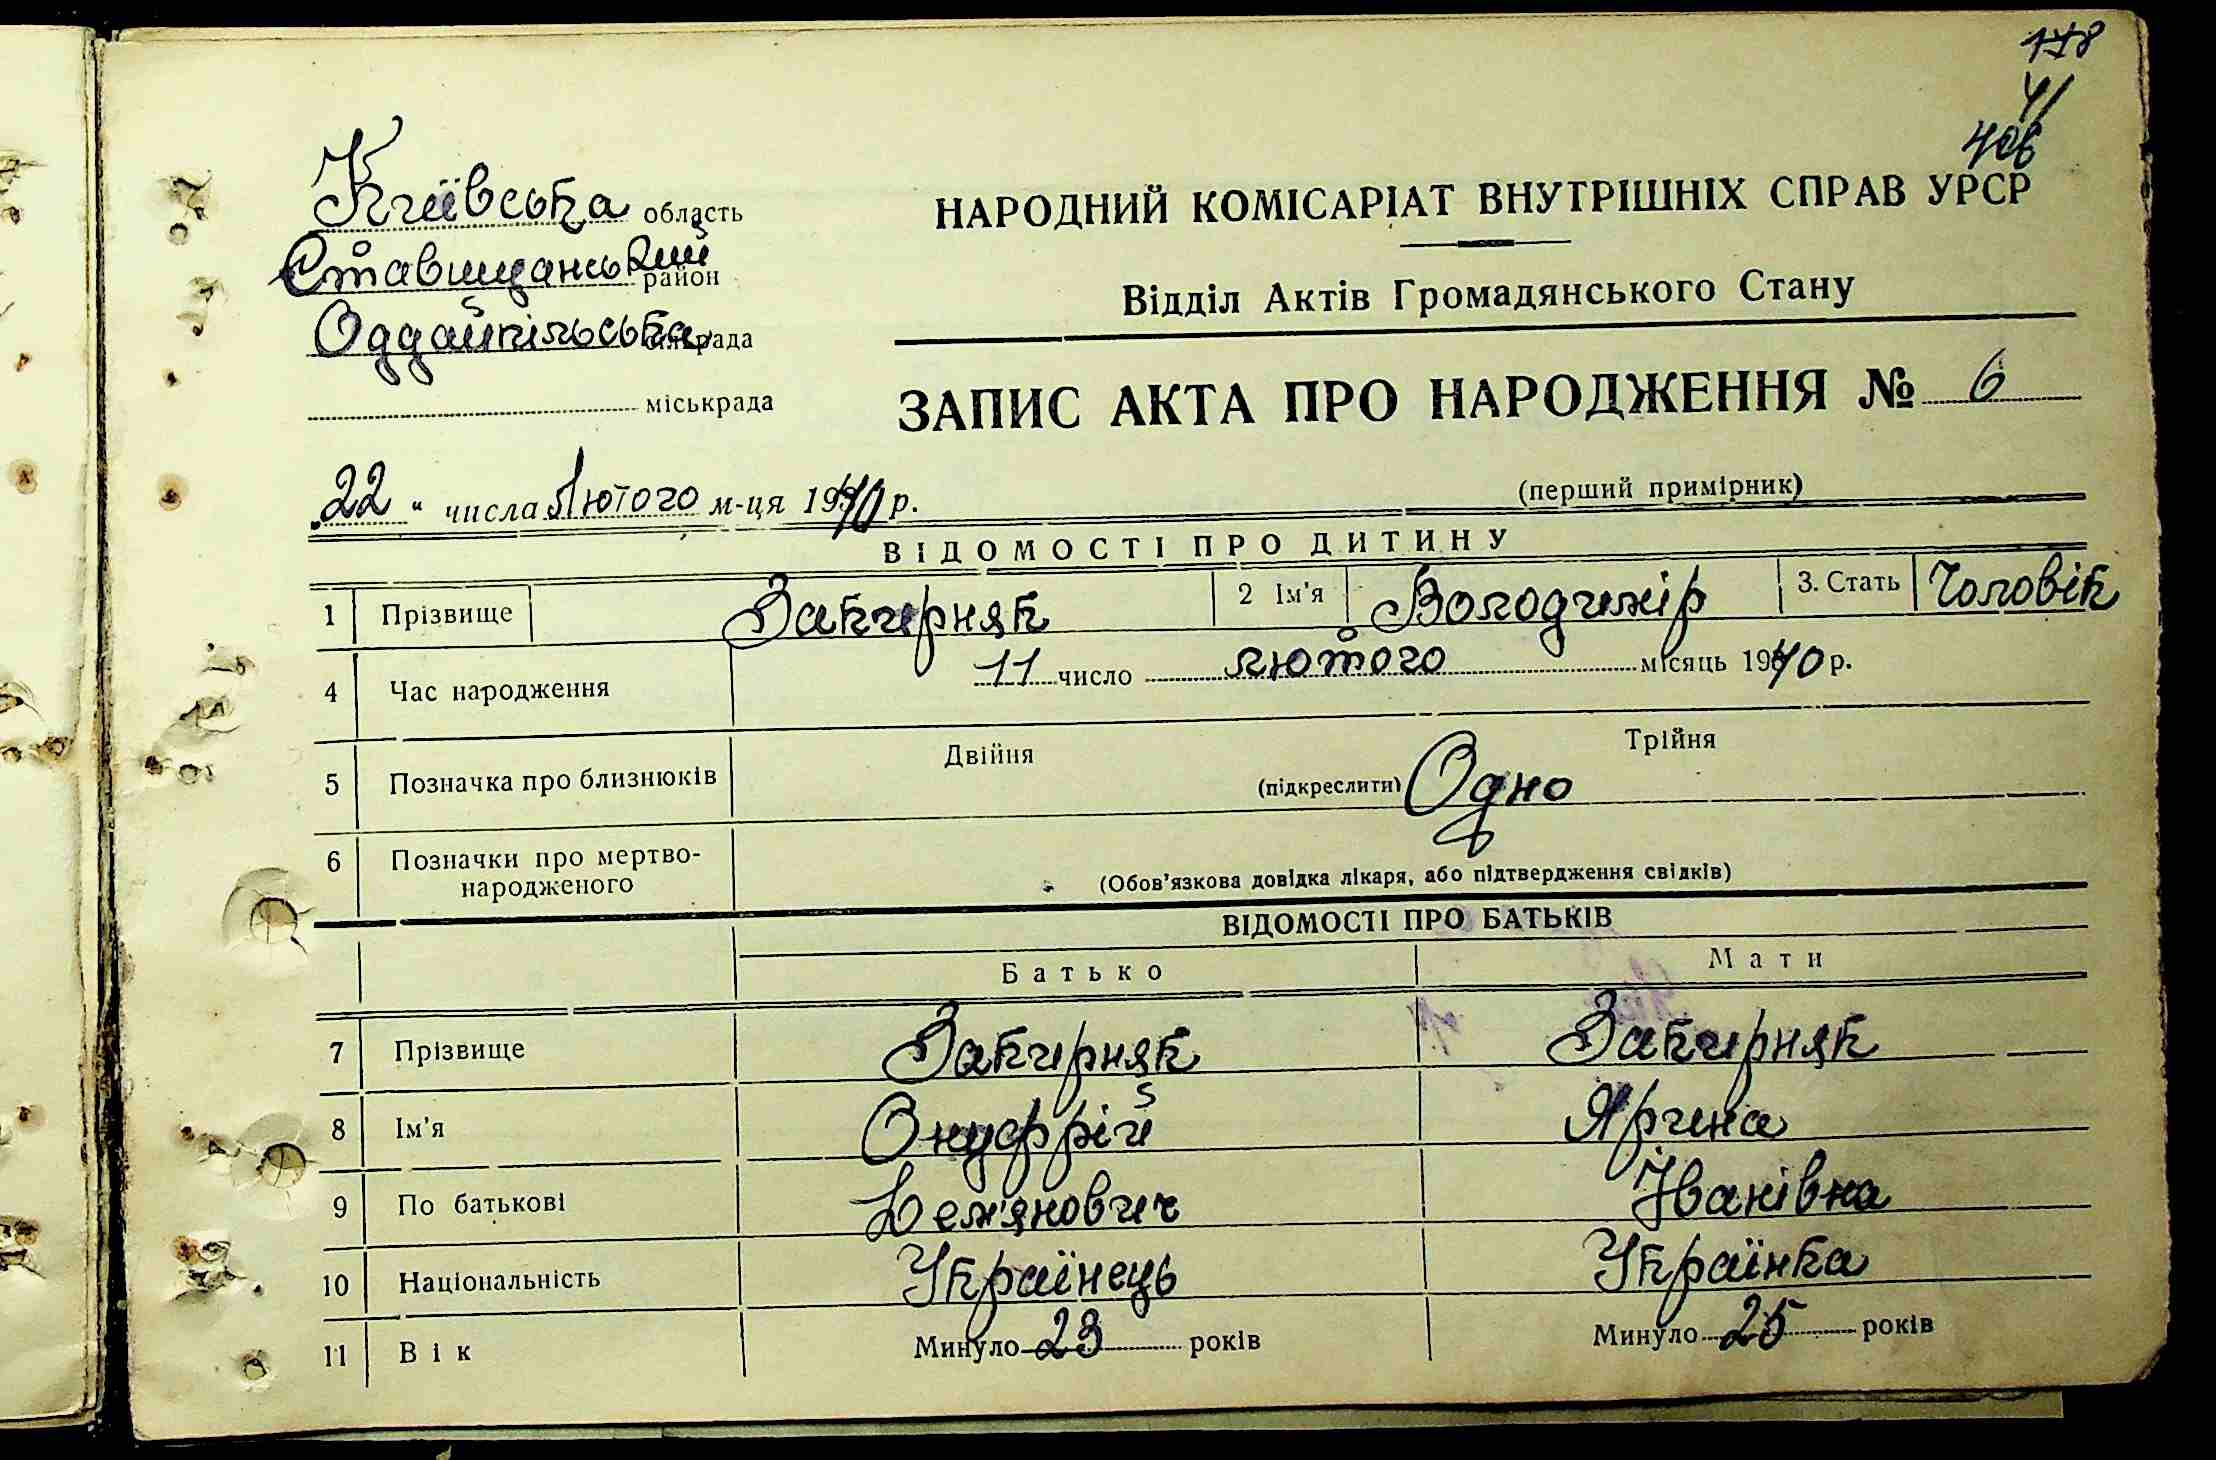 178
41
40в
Київська область
Ставищанський район
Оддайпільська сільрада
міськрада
НАРОДНИЙ КОМІСАРІАТ ВНУТРІШНІХ СПРАВ УРСР
Відділ Актів Громадянського Стану
ЗАПИС АКТА ПРО НАРОДЖЕННЯ № 6
(перший примірник)
„22" числа Лютого м-ця 1940 р.
ВІДОМОСТІ ПРО ДИТИНУ
1 Прізвище Закирняк 2 Ім'я Володимір 3. Стать Чоловік
4 Час народження 11 число лютого місяць 1940 р.
5 Позначка про близнюків Двійня (підкреслити) Одно Трійня
6 Позначки про мертво-
народженого
(Обов'язкова довідка лікаря, або підтвердження свідків)
ВІДОМОСТІ ПРО БАТЬКІВ
Батько Мати
7 Прізвище Закирняк Закирняк
8 Ім'я Онуфрій Ярина
9 По батькові Дем'янович Іванівна
10 Національність Українець Українка
11 Вік Минуло 23 років Минуло 25 років